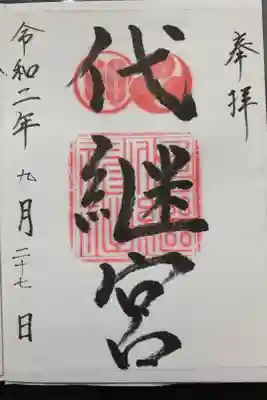 奉拝
代継宮
令和二年 九月二十七日